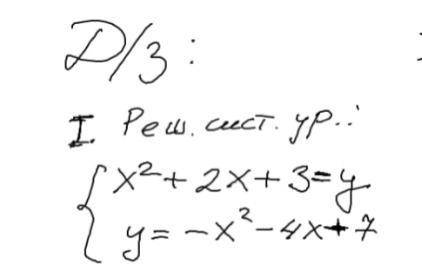 Д/з:
I. Реш. сист. ур.:
x²+2x+3=y
y=-x²-4x+7